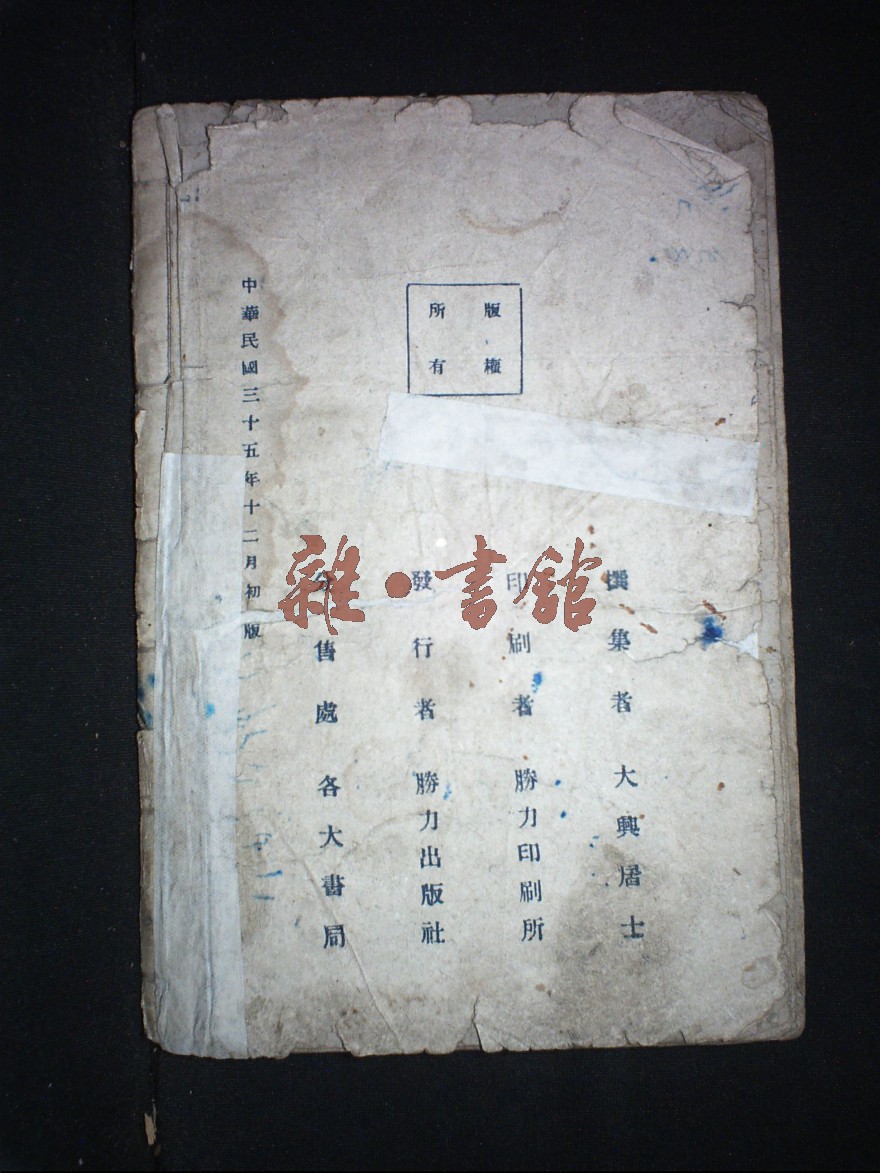 版權
所有
撰集者 大興居士
印刷者 勝力印刷所
發行者 勝力出版社
分售處 各大書局
中華民國三十五年十二月初版
雜·書館